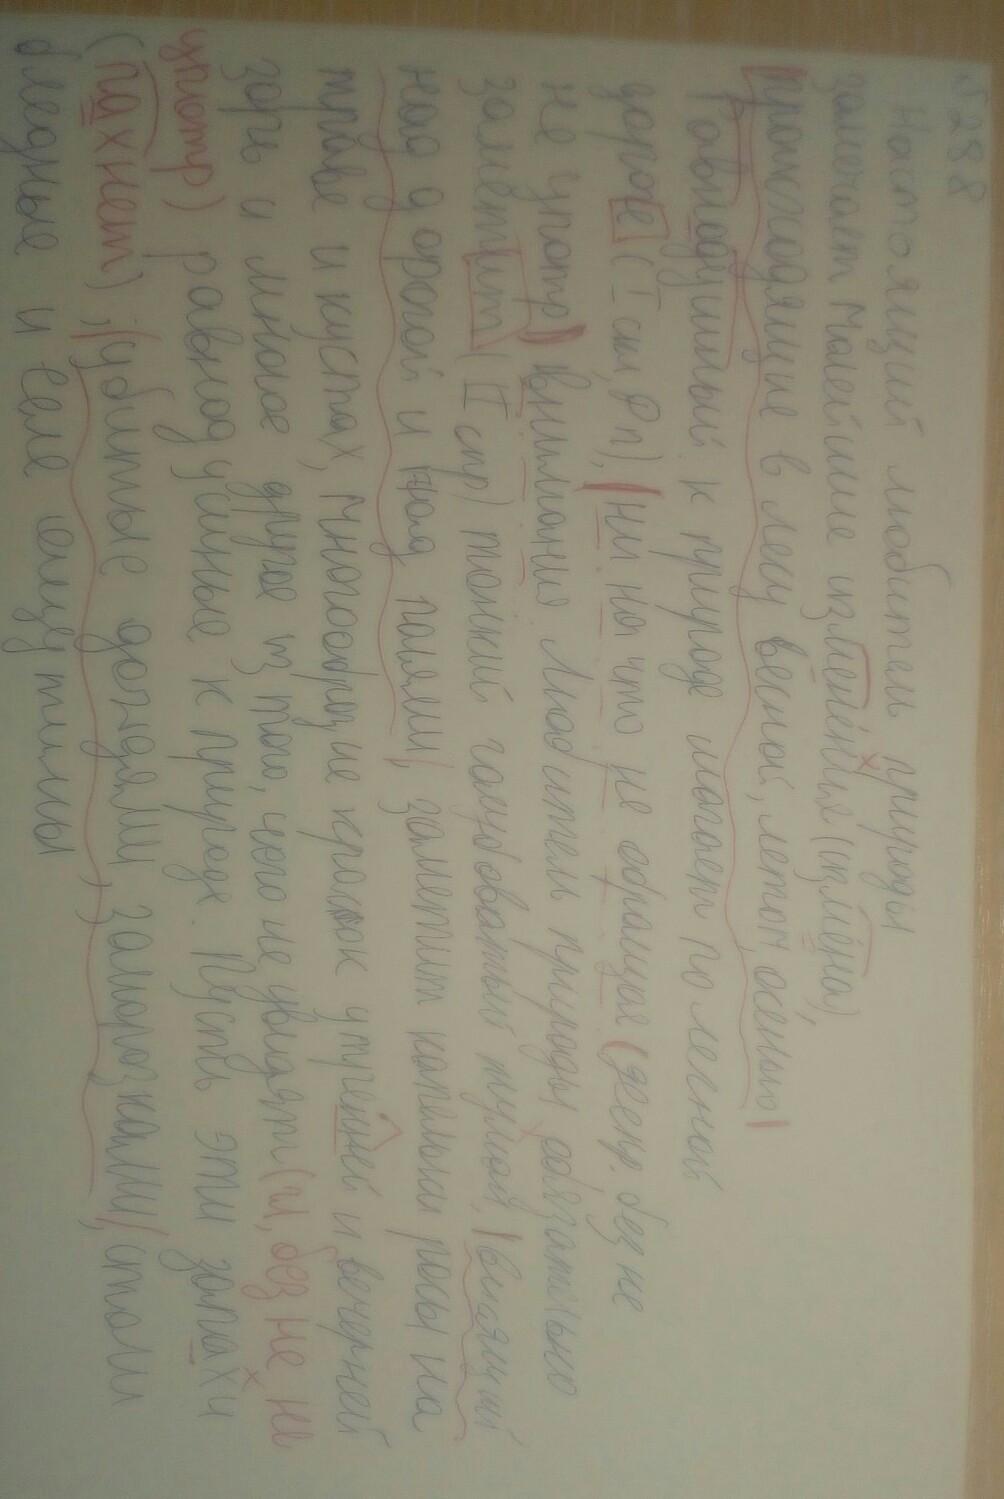 № 288
Настоящий любитель природы
замечает малейшие изменения (измена),
происходящие в лесу весной, летом, осенью
Равнодушный к природе шагает по лесной
дороге (I скл, Дп), ни на что не обращая (деепр. без не
не употр) внимания Любитель природы обязательно
заметит (II спр) тонкий голубоватый туман,
над дорогой и над полями, заметит капельки росы на
траве и кустах, многообразие красок утренней и вечерней
зорь и многое другое из того, чего не увидят (гл, без не не
употр) равнодушные к природе. Пусть эти запахи
(пахнет), убитые дождями, заморозками, стали
бледные и еле ощутимы